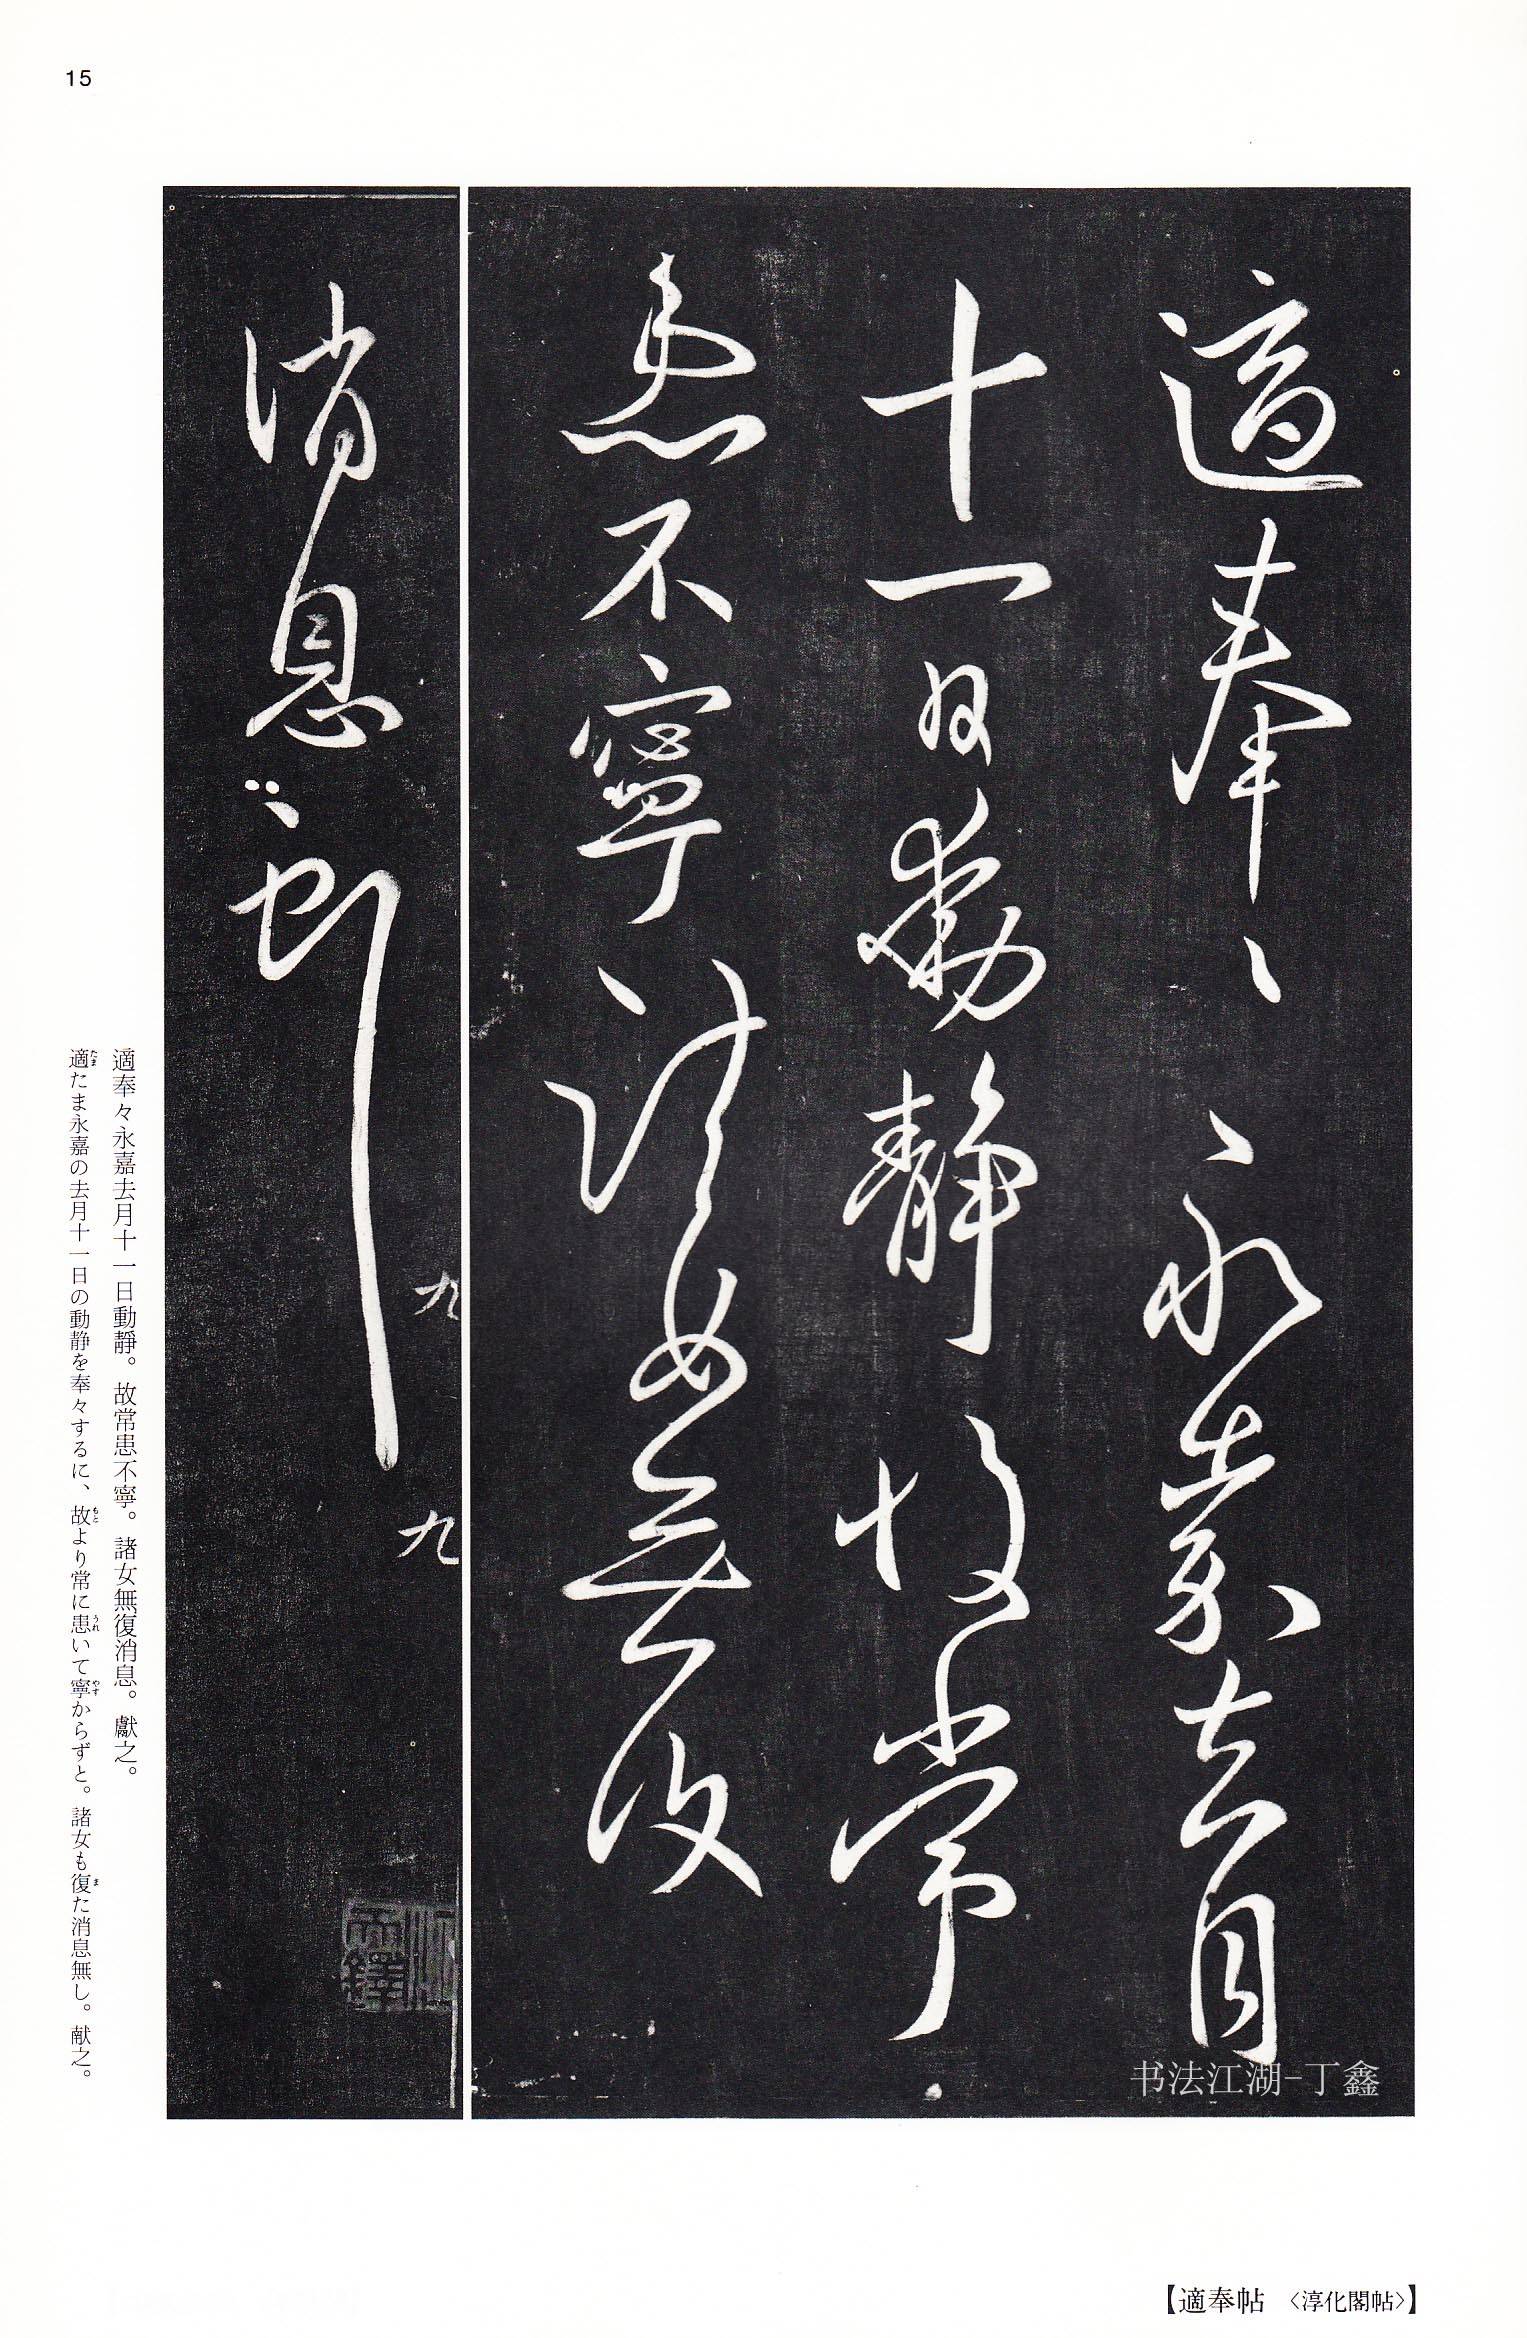 15
適奉〻永嘉去月
十一日動靜故常
患不寧諸女無復
消息
九
九
書法江湖-丁鑫
適奉々永嘉去月十一日動靜。故常患不寧。諸女無復消息。獻之。
適たま永嘉の去月十一日の動静を奉々するに、故より常に患いて寧からずと。諸女も復た消息無し。献之。
【適奉帖 〈淳化閣帖〉】